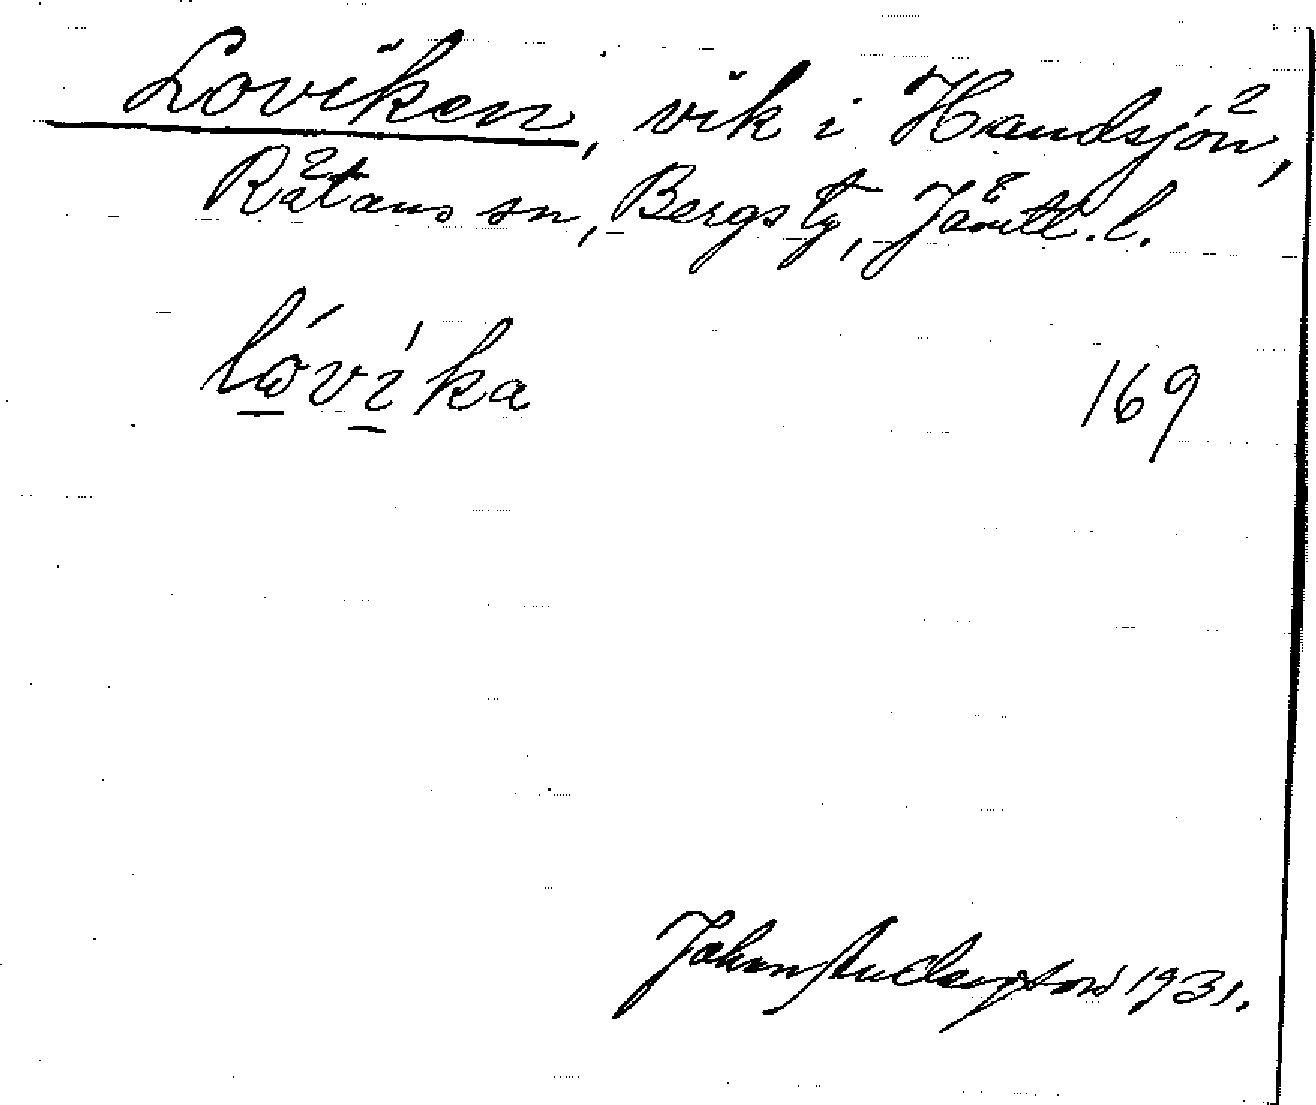 Loviken, vik i Handsjön,
Rätans sn, Bergs tg, Jämtl. l.
lóvíka 169
John Andersson 1931.